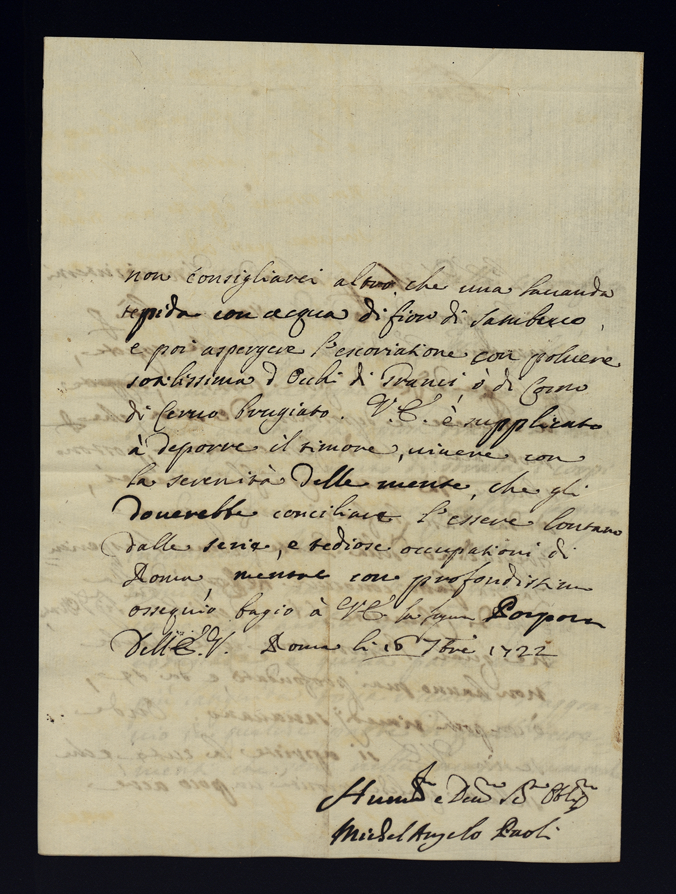 non consigliarei altro, che una lavanda
tepida con acqua di fiori di sambuco,
e poi aspergere l'escoriatione con poluere
sottilissima d'Occhi di Granci, ò di Corno
di Ceruo brugiato. V.E. è supplicato
à deporre il timore, viuere con
la serenità della mente, che gli
douerebbe conciliare l'essere lontano
dalle serie, e tediose occupationi di
Roma, mentre con profondissimo
ossequio bagio à V.E. la sagra Porpora
Dell'E.V. Roma li 16 7bre 1722
Hum.mo e Deu.mo Obl.mo
Michel Angelo Paoli